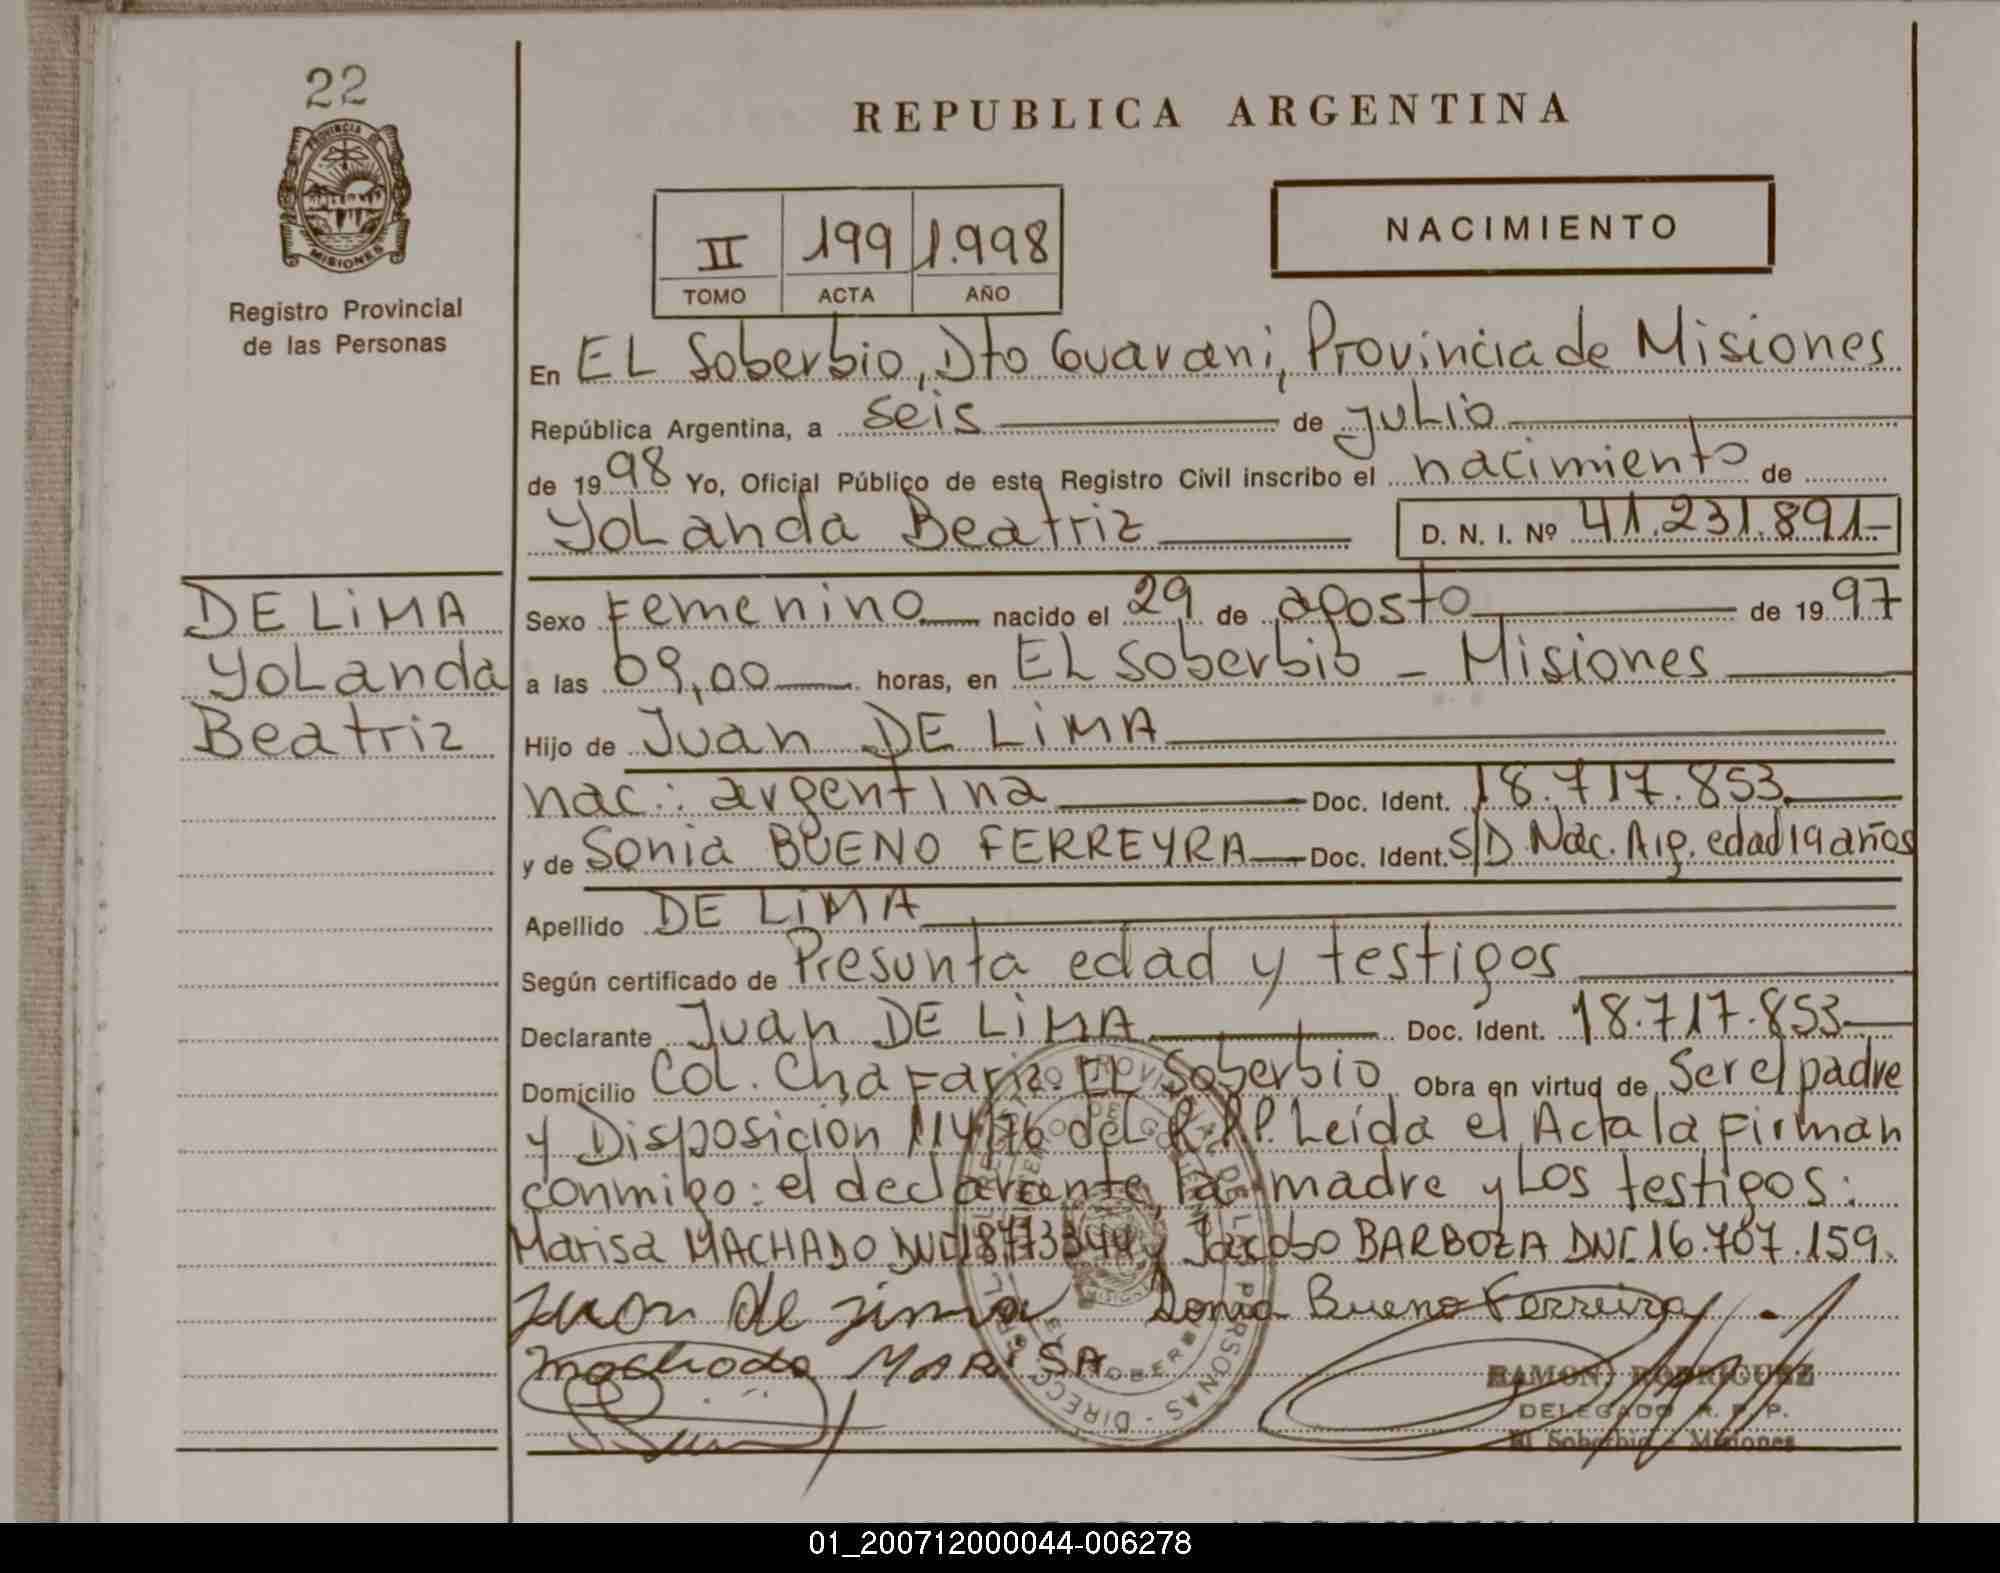 22
PROVINCIA DE
MISIONES
Registro Provincial
de las Personas
REPUBLICA ARGENTINA
II 199 1.998
TOMO ACTA AÑO
NACIMIENTO
En EL Soberbio, Dto Guarani, Provincia de Misiones
República Argentina, a seis de julio
de 1998 Yo, Oficial Público de este Registro Civil inscribo el nacimiento de
Yolanda Beatriz D. N. I. Nº 41.231.891-
DE LiMA
Yolanda
Beatriz
Sexo Femenino nacido el 29 de agosto de 1997
a las 09,00 horas, en EL Soberbio - Misiones
Hijo de Juan DE LiMA
nac.: argentina Doc. Ident. 18.717.853
y de Sonia BUENO FERREYRA Doc. Ident. S/D Nac. Arg. edad 19 años
Apellido DE LiMA
Según certificado de Presunta edad y testigos
Declarante Juan DE LiMA Doc. Ident. 18.717.853
Domicilio Col. Chafariz. EL Soberbio Obra en virtud de Ser el padre
y Disposición 114/76 del R.P.P. Leída el Acta la firman
conmigo: el declarante, la madre y Los testigos:
Marisa MACHADO DNI 18773344 y Jacobo BARBOZA DNI. 16.707.159.
Juan de Lima Sonia Bueno Ferreira
Machado MARISA
RAMON RODRIGUEZ
DELEGADO R. P. P.
El Soberbio - Misiones
01_200712000044-006278